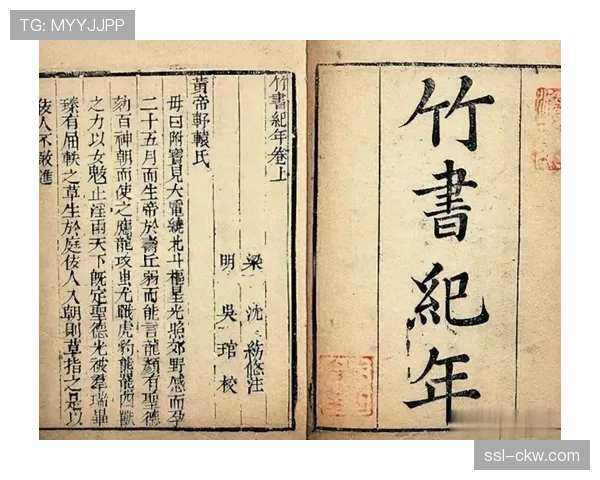 TG: MYYJJPP
竹書紀年
竹書紀年卷上
梁 沈約附注
明 吳琯校
黃帝軒轅氏
母曰附寶見大電繞北斗樞星光照郊野感而孕
二十五月而生帝於壽丘弱而能言龍顏有聖德
劾百神朝而使之應龍攻蚩尤戰虎豹熊羆四獸
之力以女魃止淫雨天下既定聖德光被羣瑞畢
臻有屈軼之草生於庭佞人入朝則草指之是以
佞人不敢進
ssl-ckw.com